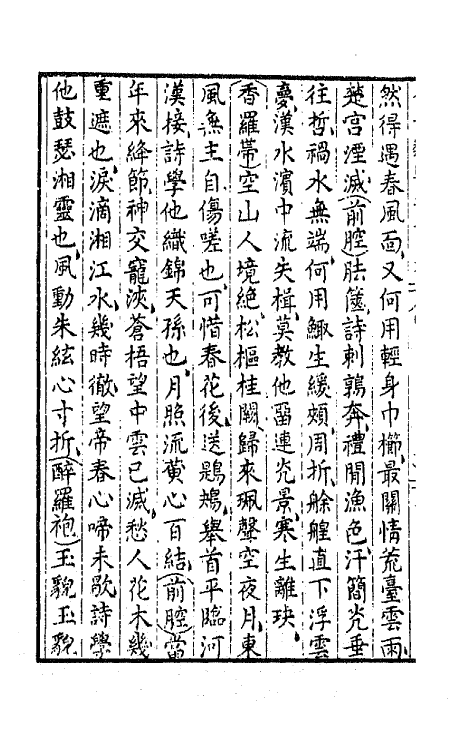 然得遇春風面又何用輕身巾櫛最關情荒臺雲雨
楚宮湮滅(前腔)胠篋詩刺鶉奔禮閒漁色汗簡光垂
往哲禍水無端何用鯫生緩頰周折艅艎直下浮雲
夢漢水濱中流失楫莫教他留連光景寒生離玦
(香羅帶)空山人境絕松樞桂闕歸來珮聲空夜月東
風無主自傷嗟也可惜春花後送鶗鴂舉首平臨河
漢接詩學他織錦天孫也月照流黃心百結(前腔)當
年來絳節神交寵浹蒼梧望中雲已滅愁人花木幾
重遮也淚滴湘江水幾時徹望帝春心啼未歇詩學
他鼓瑟湘靈也風動朱絃心寸折(醉羅袍)玉貌玉貌